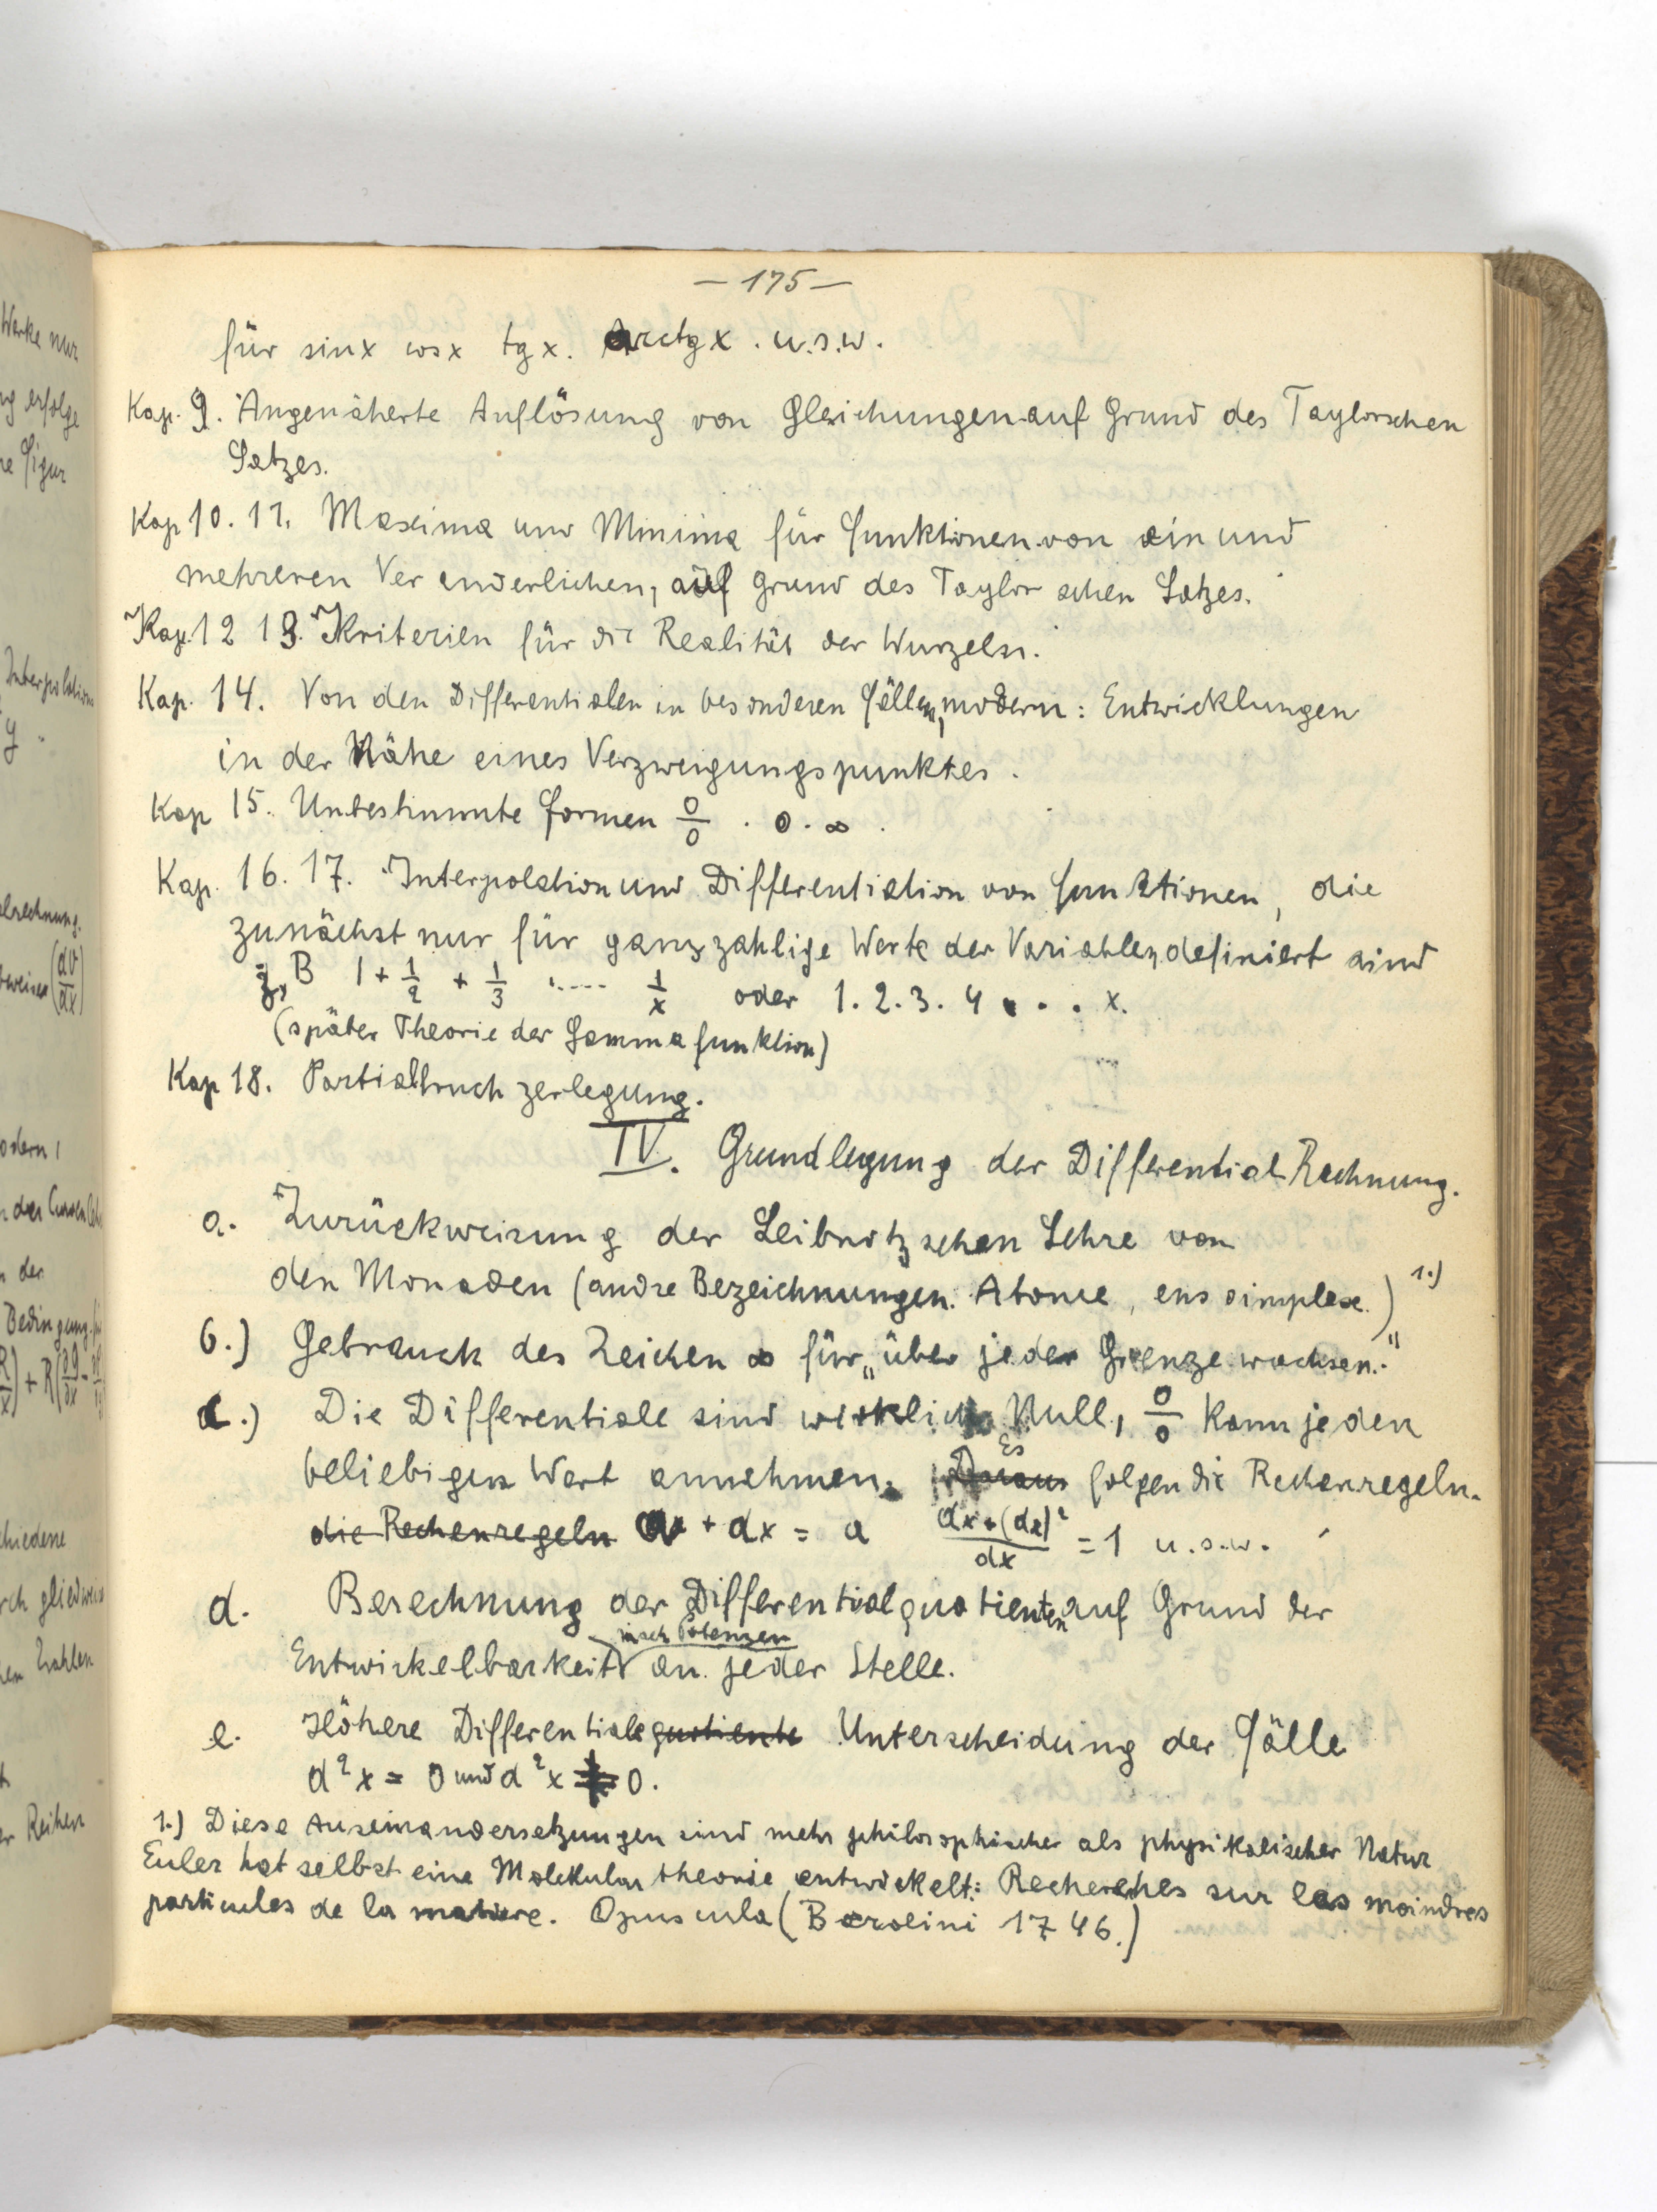 — 175 —
für sin x cos x tg x. Arctg x. u.s.w.
Kap. 9. Angenäherte Auflösung von Gleichungen auf Grund des Taylorschen
Satzes.
Kap 10. 11. Maxima und Minima für Funktionen von ein und
mehreren Veränderlichen, auf Grund des Taylorschen Satzes.
Kap. 12 13. Kriterien für die Realität der Wurzeln.
Kap. 14. Von den Differentialen in besonderen Fällen, modern: Entwicklungen
in der Nähe eines Verzweigungspunktes.
Kap 15. Unbestimmte Formen 0/0 . 0·∞.
Kap. 16. 17. Interpolation und Differentiation von Funktionen, die
zunächst nur für ganzzahlige Werte der Variablen definiert sind
z. B 1 + 1/2 + 1/3 ..... 1/x oder 1. 2. 3. 4 . . . x.
(später Theorie der Gammafunktion)
Kap 18. Partialbruchzerlegung.
IV. Grundlegung der Differential Rechnung.
a. Zurückweisung der Leibnitzschen Lehre von
den Monaden (andre Bezeichnungen. Atome, ens simplex.) 1.)
b.) Gebrauch des Zeichen ∞ für „über jeder Grenze wachsen."
c.) Die Differentiale sind wirklich Null, 0/0 kann jeden
beliebigen Wert annehmen. Daraus Es folgen die Rechenregeln.
die Rechenregeln a + dx = a (dx+(dx)²)/dx = 1 u.s.w.
d. Berechnung der Differentialquotienten auf Grund der
nach Potenzen
Entwickelbarkeit an jeder Stelle.
e. Höhere Differentialequotiente Unterscheidung der Fälle
d²x = 0 und d²x ≠ 0.
1.) Diese Auseinandersetzungen sind mehr philosophischer als physikalischer Natur
Euler hat selbst eine Molekular theorie entwickelt: Recherches sur les moindres
particules de la matiere. Opuscula (Berolini 1746.)
Werke nur
ng erfolge
re Figur
Interpolation
y.
elrechnung.
(dV/dx)
odern,
der
Bedingung
chiedene
rch gliedweise
Zahlen
er Reihen